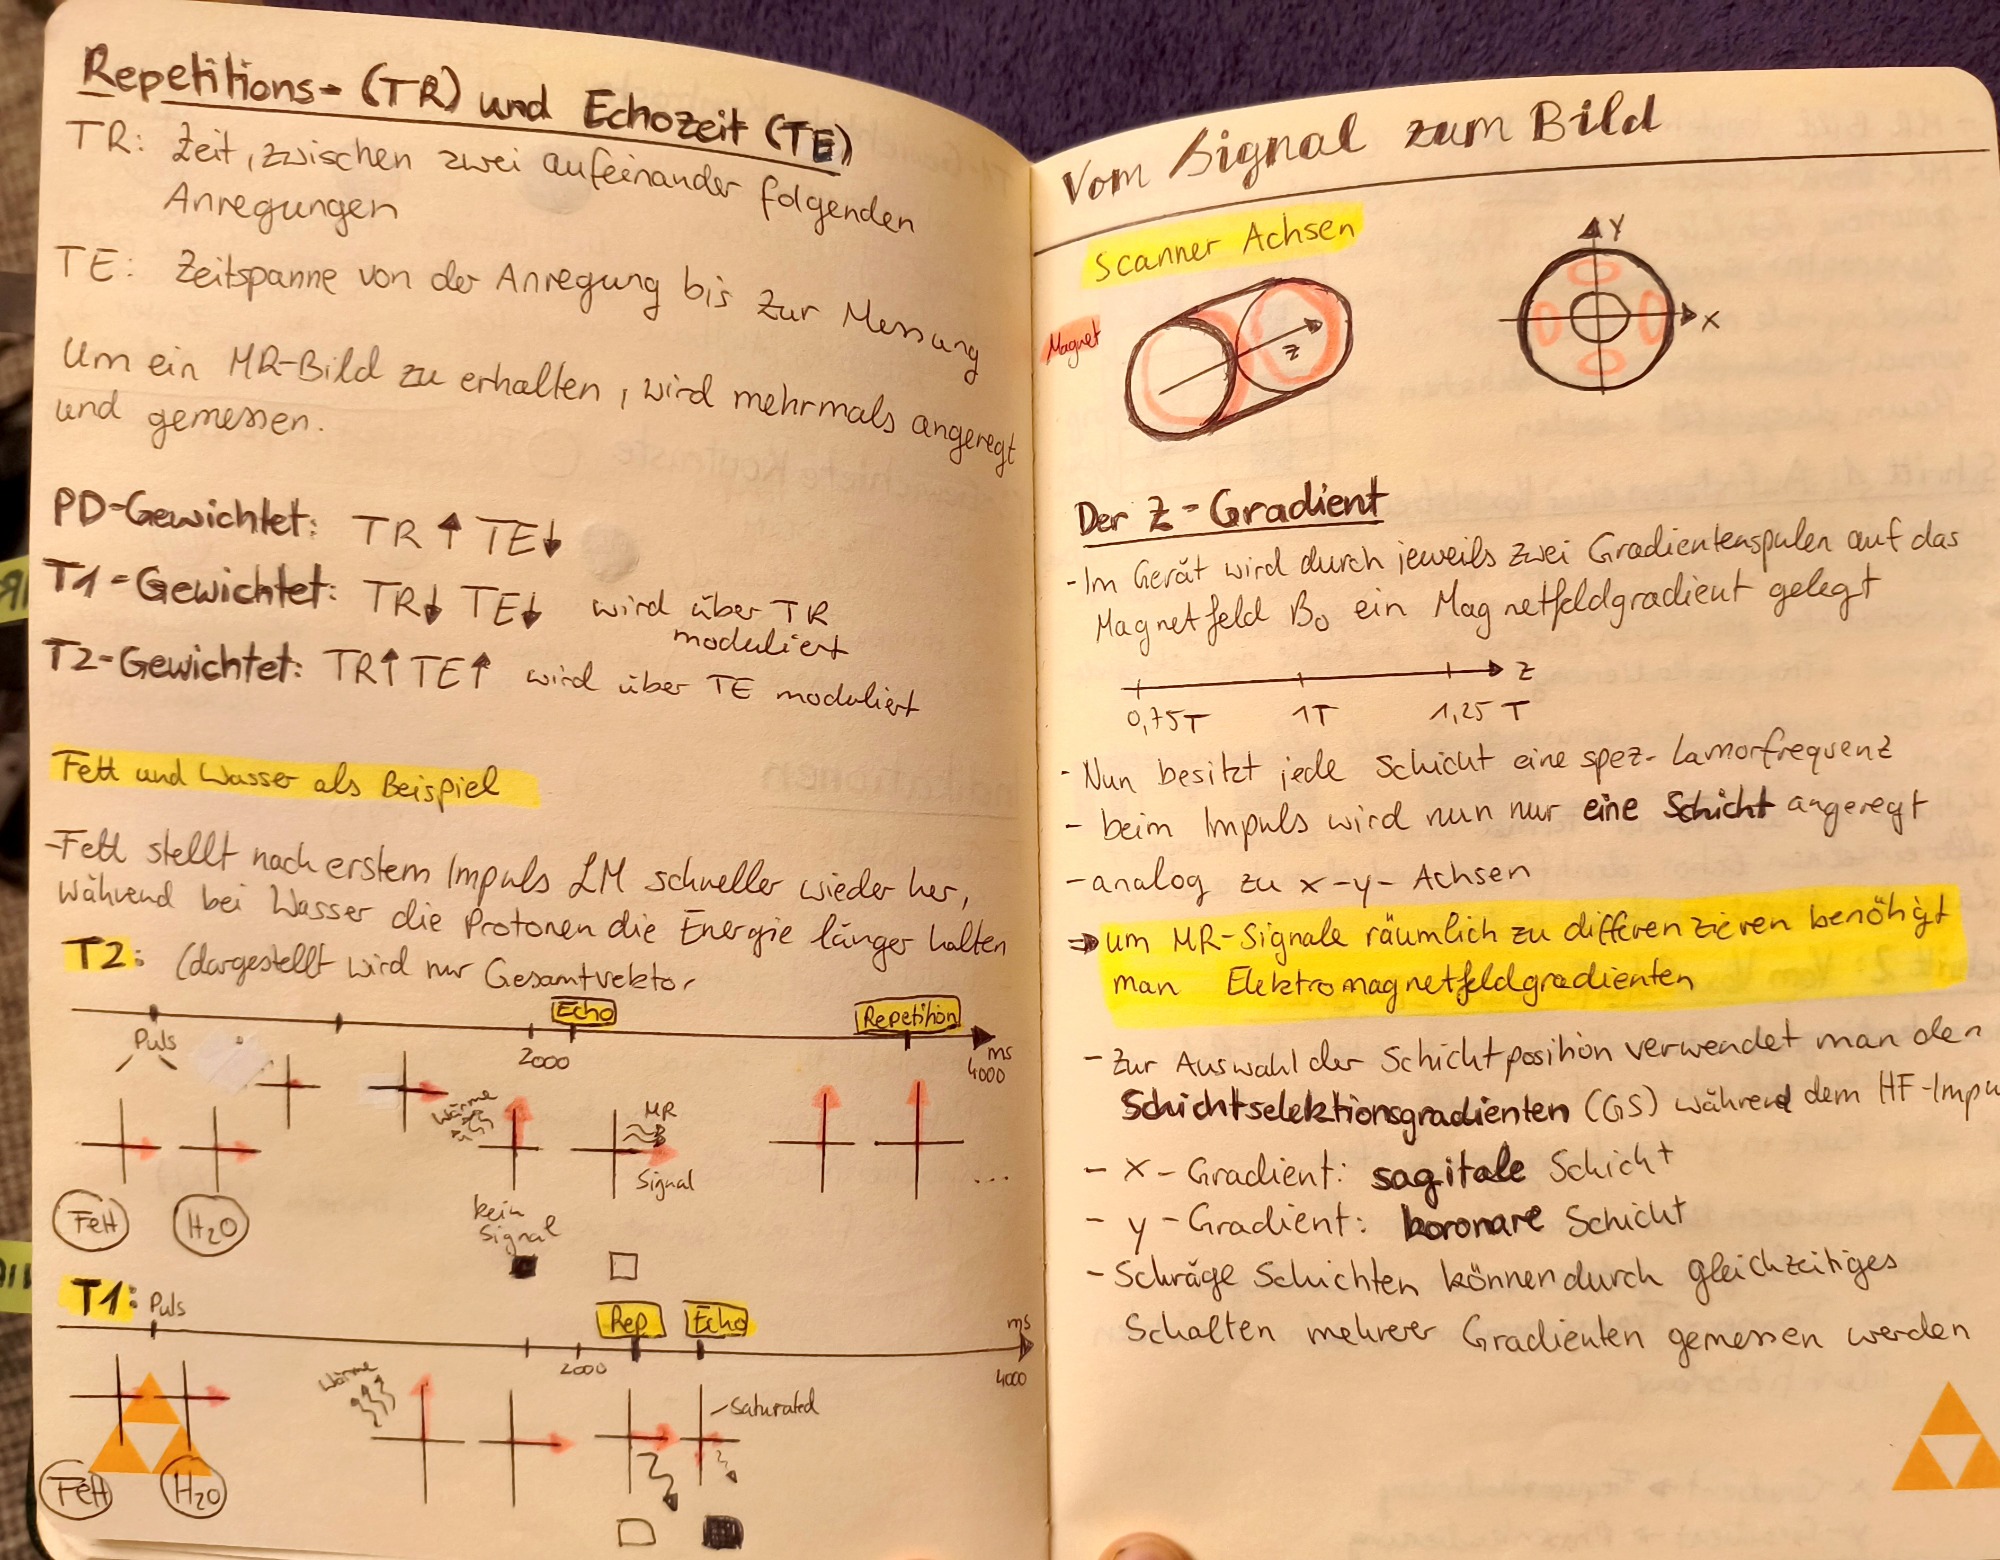 Repetitions- (TR) und Echozeit (TE)
TR: Zeit, zwischen zwei aufeinander folgenden
Anregungen
TE: Zeitspanne von der Anregung bis zur Messung
Um ein MR-Bild zu erhalten, wird mehrmals angeregt
und gemessen.
PD-Gewichtet: TR ↑ TE ↓
T1-Gewichtet: TR ↓ TE ↓ wird über TR
moduliert
T2-Gewichtet: TR ↑ TE ↑ wird über TE moduliert
Fett und Wasser als Beispiel
-Fett stellt nach erstem Impuls LM schneller wieder her,
während bei Wasser die Protonen die Energie länger halten
T2: (dargestellt wird nur Gesamtvektor
Echo
Repetition
Puls
2000
ms
4000
Wärme
MR
Signal
...
Fett
H2O
kein
Signal
T1: Puls
Rep
Echo
ms
2000
4000
Wärme
Saturated
Fett
H2O
Vom Signal zum Bild
Scanner Achsen
Y
Magnet
z
X
Der Z-Gradient
-Im Gerät wird durch jeweils zwei Gradientenspulen auf das
Magnetfeld B0 ein Magnetfeldgradient gelegt
z
0,75T 1T 1,25 T
- Nun besitzt jede Schicht eine spez. Lamorfrequenz
- beim Impuls wird nun nur eine Schicht angeregt
- analog zu x-y- Achsen
⇒ um MR-Signale räumlich zu differenzieren benötigt
man Elektromagnetfeldgradienten
- Zur Auswahl der Schichtposition verwendet man den
Schichtselektionsgradienten (GS) während dem HF-Impu
- x-Gradient: sagitale Schicht
- y-Gradient: koronare Schicht
- Schräge Schichten können durch gleichzeitiges
Schalten mehrerer Gradienten gemessen werden